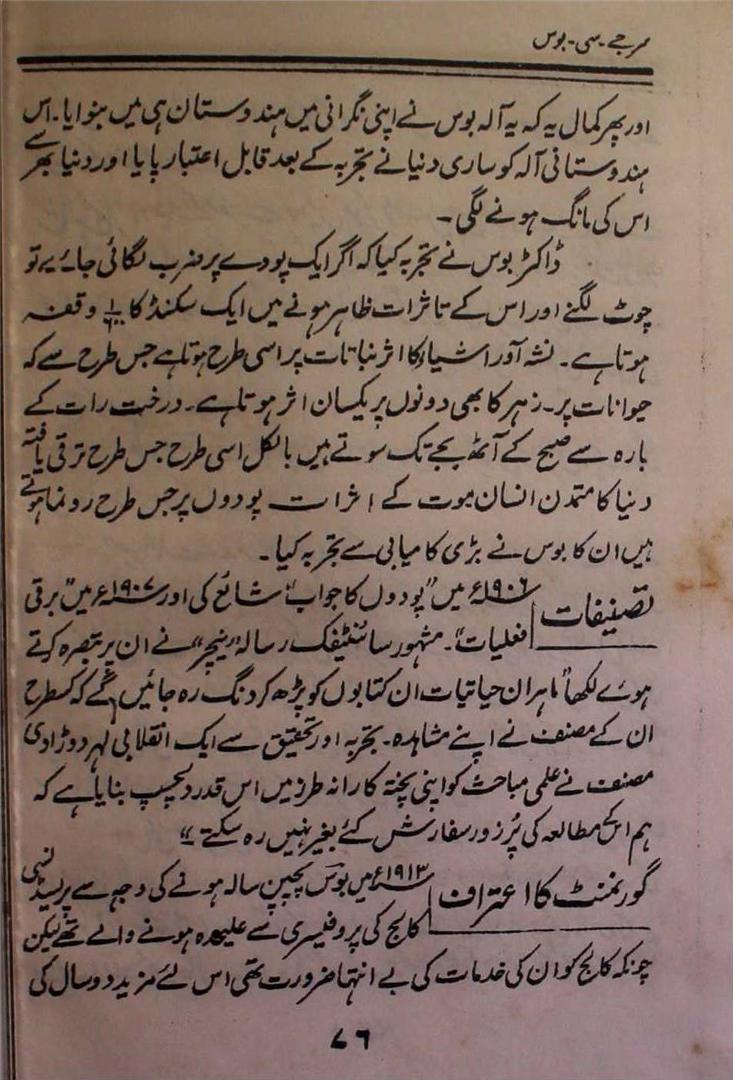 سر جے۔ سی۔ بوس
اور پھر کمال یہ کہ یہ آلہ بوس نے اپنی نگرانی میں ہندوستان ہی میں بنوایا۔ اس
ہندوستانی آلہ کو ساری دنیا نے تجربہ کے بعد قابل اعتبار پایا اور دنیا بھر سے
اس کی مانگ ہونے لگی۔
ڈاکٹر بوس نے تجربہ کیا کہ اگر ایک پودے پر ضرب لگائی جائے تو
چوٹ لگنے اور اس کے تاثرات ظاہر ہونے میں ایک سکنڈ کا وقفہ
ہوتا ہے۔ نشہ آور اشیاء کا اثر نباتات پر اسی طرح ہوتا ہے جس طرح سے کہ
حیوانات پر۔ زہر کا بھی دونوں پر یکساں اثر ہوتا ہے۔ درخت رات کے
بارہ سے صبح کے آٹھ بجے تک سوتے ہیں بالکل اسی طرح جس طرح ترقی یافتہ
دنیا کا متمدن انسان موت کے اثرات پودوں پر جس طرح رونما ہوتے
ہیں ان کا بوس نے بڑی کامیابی سے تجربہ کیا۔
تصنیفات ۱۹۰۶ء میں "پودوں کا جواب" شائع کی اور ۱۹۰۷ء میں "برقی
فعلیات"۔ مشہور سائنٹیفک رسالہ "نیچر" نے ان پر تبصرہ کرتے
ہوئے لکھا "ماہران حیاتیات ان کتابوں کو پڑھ کر دنگ رہ جائیں گے کہ کسطرح
ان کے مصنف نے اپنے مشاہدہ۔ تجربہ اور تحقیق سے ایک انقلابی لہر دوڑا دی
مصنف نے علمی مباحث کو اپنی پختہ کارانہ طرز میں اس قدر دلچسپ بنایا ہے کہ
ہم انکے مطالعہ کی پُر زور سفارش کئے بغیر نہیں رہ سکتے"
گورنمنٹ کا اعتراف ۱۹۱۳ء میں بوس پچپن سالہ ہونے کی وجہ سے پریسیڈنسی
کالج کی پروفیسری سے علیحدہ ہونے والے تھے لیکن
چونکہ کالج کو ان کی خدمات کی بے انتہا ضرورت تھی اس لئے مزید دو سال کی
۷۶